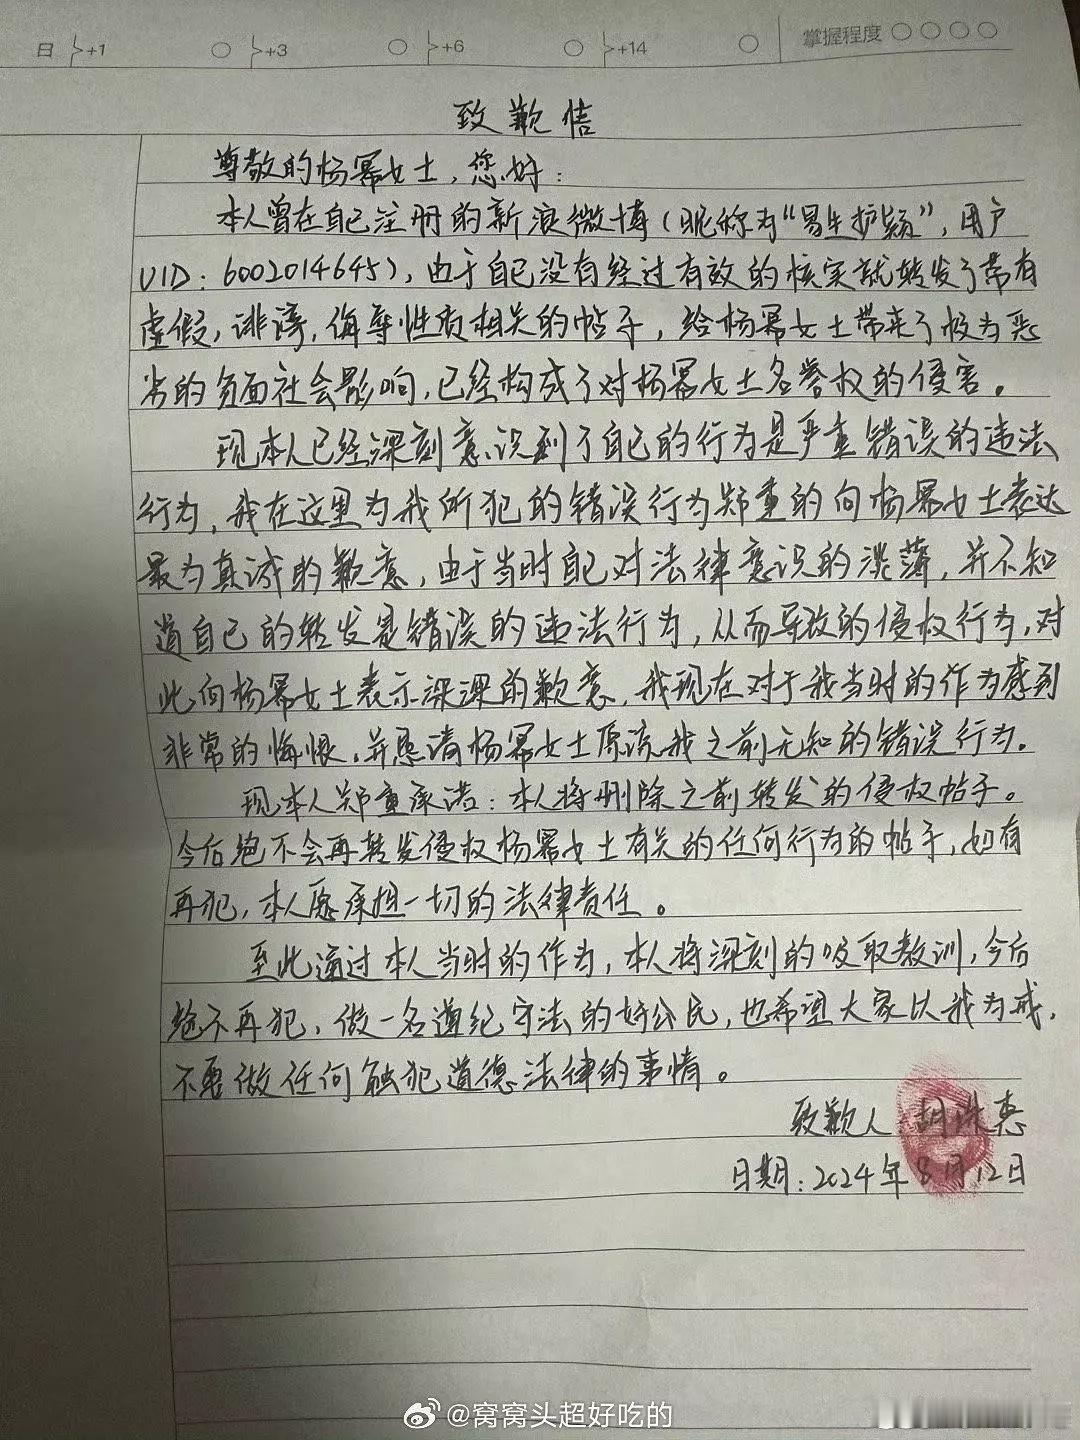 日 +1 +3 +6 +14 掌握程度
致歉信
尊敬的杨幂女士，您好：
本人曾在自己注册的新浪微博（昵称为“易生护颖”，用户
UID：6002014645），由于自己没有经过有效的核实就转发了带有
虚假，诽谤，侮辱性质相关的帖子，给杨幂女士带来了极为恶
劣的负面社会影响，已经构成了对杨幂女士名誉权的侵害。
现本人已经深刻意识到了自己的行为是严重错误的违法
行为，我在这里为我所犯的错误行为郑重的向杨幂女士表达
最为真诚的歉意，由于当时自己对法律意识的淡薄，并不知
道自己的转发是错误的违法行为，从而导致的侵权行为，对
此向杨幂女士表示深深的歉意，我现在对于我当时的作为感到
非常的悔恨，并恳请杨幂女士原谅我之前无知的错误行为。
现本人郑重承诺：本人将删除之前转发的侵权帖子。
今后绝不会再转发侵权杨幂女士有关的任何行为的帖子，如有
再犯，本人愿承担一切的法律责任。
至此通过本人当时的作为，本人将深刻的吸取教训，今后
绝不再犯，做一名遵纪守法的好公民，也希望大家以我为戒，
不要做任何触犯道德法律的事情。
致歉人：胡 惠
日期：2024年8月12日
@窝窝头超好吃的